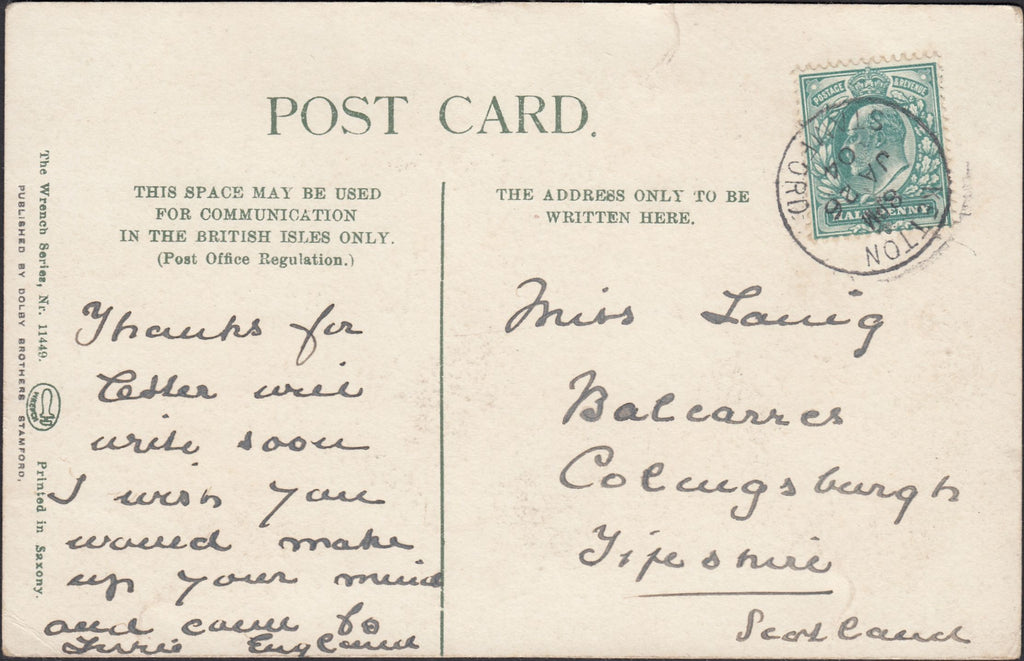 POST CARD.
THIS SPACE MAY BE USED
FOR COMMUNICATION
IN THE BRITISH ISLES ONLY.
(Post Office Regulation.)
THE ADDRESS ONLY TO BE
WRITTEN HERE.
POSTAGE & REVENUE
HALFPENNY
JA 26
04
Thanks for
letter will
write soon
I wish you
would make
up your mind
and come to
England
Miss Laing
Balcarres
Colingsburgh
Fifeshire
Scotland
The Wrench Series, Nr. 11449.
Printed in Saxony.
PUBLISHED BY DOLBY BROTHERS STAMFORD,